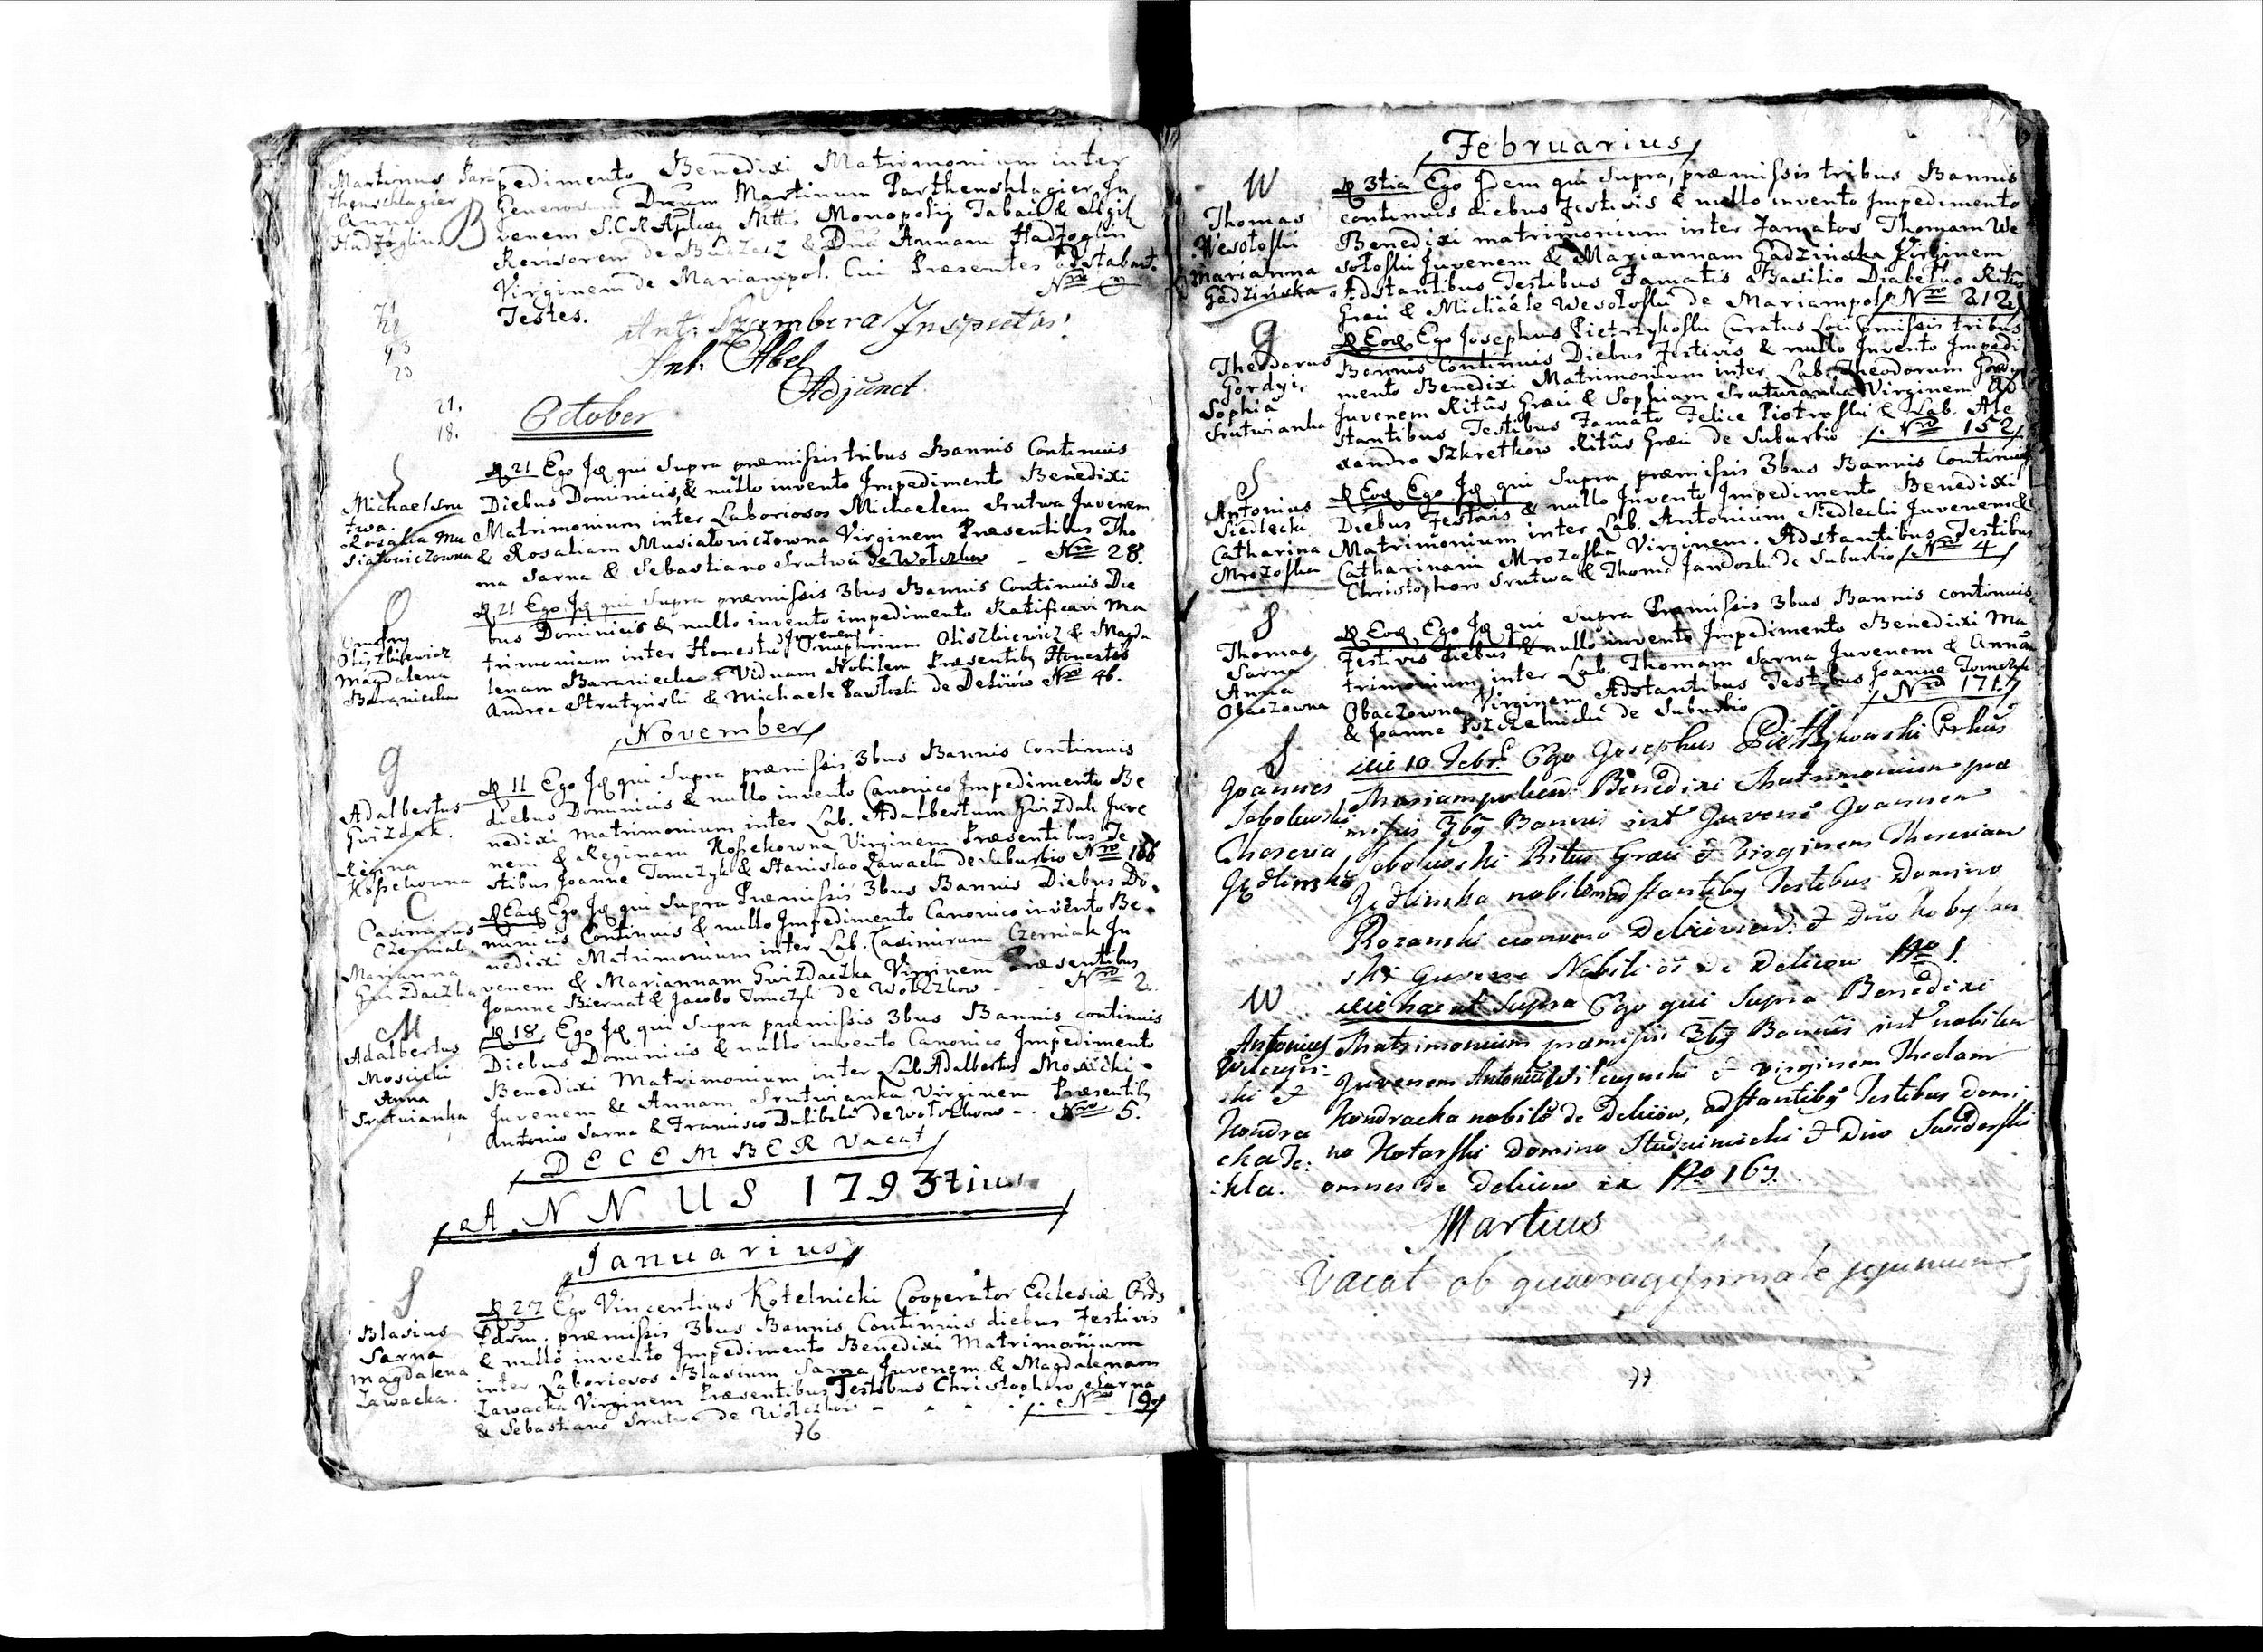 Martinus Par=
thenschlagier
Anna
Hadzoglin
B
pedimento Benedixi Matrimonium inter
Generosum Dnum Martinum Parthenshlagier Ju
venem S.C.R. Monopolij Tabaci & Sigil
Revisorem de & Dnã Annam Hadzoglin
Virginem de Mariampol. Cui Præsentes adstabant.
Testes. Nro
Ant: Szambera Inspector
Ant. Abel
Adjunct
71
28
43
23
21.
18.
October
S
Michael Sru
twa.
Rosalia Mu
siatowiczowna
21 Ego Id qui Supra præmissis tribus Bannis Continuis
Diebus Dominicis, & nullo invento Impedimento Benedixi
Matrimonium inter Laboriosos Michaelem Srutwa Juvenem
& Rosaliam Musiatowiczowna Virginem Præsentibus Tho
ma Sarna & Sebastiano Srutwa de Wołczkow - Nro 28.
O
Onufry
Oliszkiewicz
Magdalena
Baraniecka
21 Ego Id qui Supra præmissis 3bus Bannis Continuis Die
bus Dominicis & nullo invento impedimento Ratificavi Ma
trimonium inter Honestũ Onuphrium Juvenem Oliszkiewicz & Magda
lenam Baraniecka Viduam Nobilem Præsentibg Honestis
Andrea Strutyński & Michaele Pawłoski de Deliiow Nro 46.
November
G
Adalbertus
Gwizdak.
Regina
Kossekowna
11 Ego Id qui Supra præmissis 3bus Bannis Continuis
diebus Dominicis & nullo invento Canonico Impedimento Be
nedixi Matrimonium inter Lab. Adalbertum Gwizdak Juve
nem & Reginam Kossekowna Virginem Præsentibus Te
stibus Joanne Tomczyk & Stanislao Zawacki de Suburbio Nro 166
C
Casimirus
Czerniak
Marianna
Gwizdaczka
Ead Ego Id qui Supra Præmissis 3bus Bannis Diebus Do
minicis Continuis & nullo Impedimento Canonico invento Be
nedixi Matrimonium inter Lab. Casimirum Czerniak Ju
venem & Mariannam Gwizdaczka Virginem Præsentibus
Joanne Biernat & Jacobo Tomczyk de Wołczkow - - Nro 2.
M
Adalbertus
Mosicki
Anna
Srutwianka
18. Ego Id qui Supra præmissis 3bus Bannis continuis
Diebus Dominicis & nullo invento Canonico Impedimento
Benedixi Matrimonium inter Lab. Adalbertus Mosicki
Juvenem & Annam Srutwianka Virginem Præsentibg
Antonio Sarna & Francisco Dulibski de Wołczkow - - Nro 5.
DECEMBER Vacat
ANNUS 1793tius
Januarius
S
Blasius
Sarna
Magdalena
Zawacka.
27 Ego Vincentius Kotelnicki Cooperator Ecclesiæ
præmissis 3bus Bannis Continuis diebus Festivis
& nullo invento Impedimento Benedixi Matrimonium
inter Laboriosos Blasium Sarna Juvenem & Magdalenam
Zawacka Virginem Præsentibus Testibus Christophoro Sarna
& Sebastiano Srutwa de Wołczkow - - - Nro 19
76
Februarius
W
Thomas
Wesołoski
Marianna
Gadzińska
3tia Ego Idem qui Supra, præmissis tribus Bannis
continuis diebus Festivis & nullo invento Impedimento
Benedixi matrimonium inter Famatos Thomam We
sołoski Juvenem & Mariannam Gadzinska Virginem
Adstantibus Testibus Famatis Basilio Ritûs
Græci & Michaële Wesołoski de Mariampol Nro 212
G
Theodorus
Gordyi,
Sophia
Srutwianka
Eod Ego Josephus Pietrzykoski Curatus Loci pmissis tribus
Bannis Continuis Diebus Festivis & nullo Invento Impedi
mento Benedixi Matrimonium inter Lab. Theodorum Gordyi
Juvenem Ritûs Græci & Sophiam Srutwianka Virginem Ad
stantibus Testibus Famato Felice Piotroski & Lab. Ale
xandro Szkretkow Ritûs Græci de Suburbio Nro 152
S
Antonius
Siedlecki
Catharina
Mrozoska
Eod Ego Id qui Supra præmissis 3bus Bannis Continuis
Diebus Festivis & nullo Invento Impedimento Benedixi
Matrimonium inter Lab. Antonium Siedlecki Juvenem &
Catharinam Mrozoska Virginem. Adstantibus Testibus
Christophoro Srutwa & Thoma Jandoski de Suburbio Nro 4
S
Thomas
Sarna
Anna
Obaczowna
Eod Ego Id qui Supra Præmissis 3bus Bannis continuis
Festivis diebus & nullo invento Impedimento Benedixi Ma
trimonium inter Lab. Thomam Sarna Juvenem & Annam
Obaczowna Virginem Adstantibus Testibus Joanne Tomczyk
& Joanne Pszczelnicki de Suburbio Nro 171
S
Joannes
Sobolewski
Theresia
Jędlinska
die 10 Febr. Ego Josephus Pietrzykowski
Mariampolien: Benedixi Matrimonium præ
missis 3bg Bannis int Juvenẽ Joannem
Sobolewski Ritus Græci & Virginem Theresiam
Jędlinska nobilem adstantibg Testibus Domino
Rozanski œconomo Deliiovien: & Dno Kobylan
ski Juvene Nobili ŏs de Deliiow Nro 1.
W
Antonius
Wilczyń:
ski &
Kondra
cka Te:
:kla.
die hac ut Supra Ego qui Supra Benedixi
Matrimonium præmissis 3bg Bannis int nobilem
Juvenem Antonium Wilczynski & Virginem Theclam
Kondracka nobilẽ de Deliiow, adstantibg Testibus Domi
no Kotarski Domino Studzinicki & Dno
omnes de Deliiow ex Nro 167.
Martius
Vacat ob quadragesimale jejunium
77